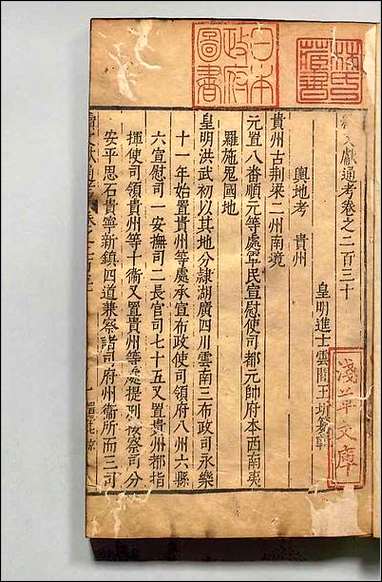 文獻通考卷之二百三十
皇明進士雲間王圻
輿地考 貴州
貴州古荆梁二州南境
元置八番順元等處軍民宣慰使司都元帥府本西南夷
羅施鬼國地
皇明洪武初以其地分隸湖廣四川雲南三布政司永樂
十一年始置貴州等處承宣布政使司領府八州六縣
六宣慰司一安撫司二長官司七十五又置貴州都指
揮使司領貴州等十衛又置貴州等處提刑按察司分
安平思石貴寧新鎮四道兼察諸司府州衛所而三司
文獻通考卷
林氏藏書
日本政府圖書
淺草文庫